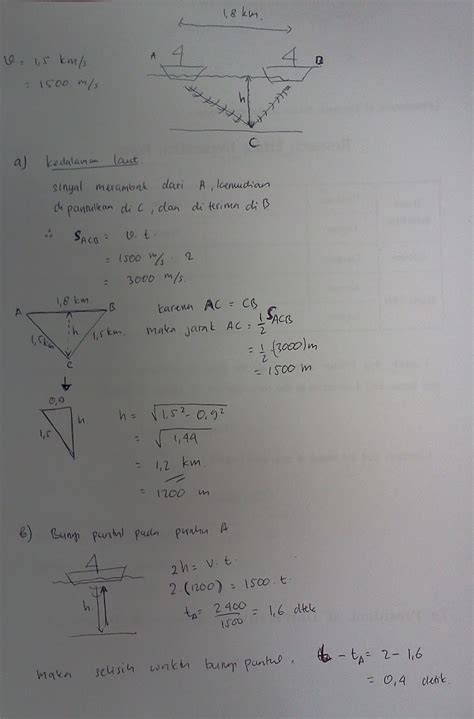 1,8 km.
A 4 4 B
V = 1,5 km/s
= 1500 m/s
h
C
a) kedalaman laut.
sinyal merambat dari A, kemudian
di pantulkan di C, dan di terima di B
∴ S_ACB = v. t.
= 1500 m/s . 2
= 3000 m/s.
1,8 km.
A B
1,5 km h. 1,5 km.
C
karena AC = CB
maka jarak AC = 1/2 S_ACB
= 1/2 (3000) m
= 1500 m
0,9
1,5 h
h = √1,5² - 0,9²
= √1,44
= 1,2 km.
= 1200 m
b) Bunyi pantul pada perahu A
4
h
2h = v. t.
2.(1200) = 1500. t.
t_A = 2400/1500 = 1,6 detik
maka selisih waktu bunyi pantul. - t_A = 2 - 1,6
= 0,4 detik.